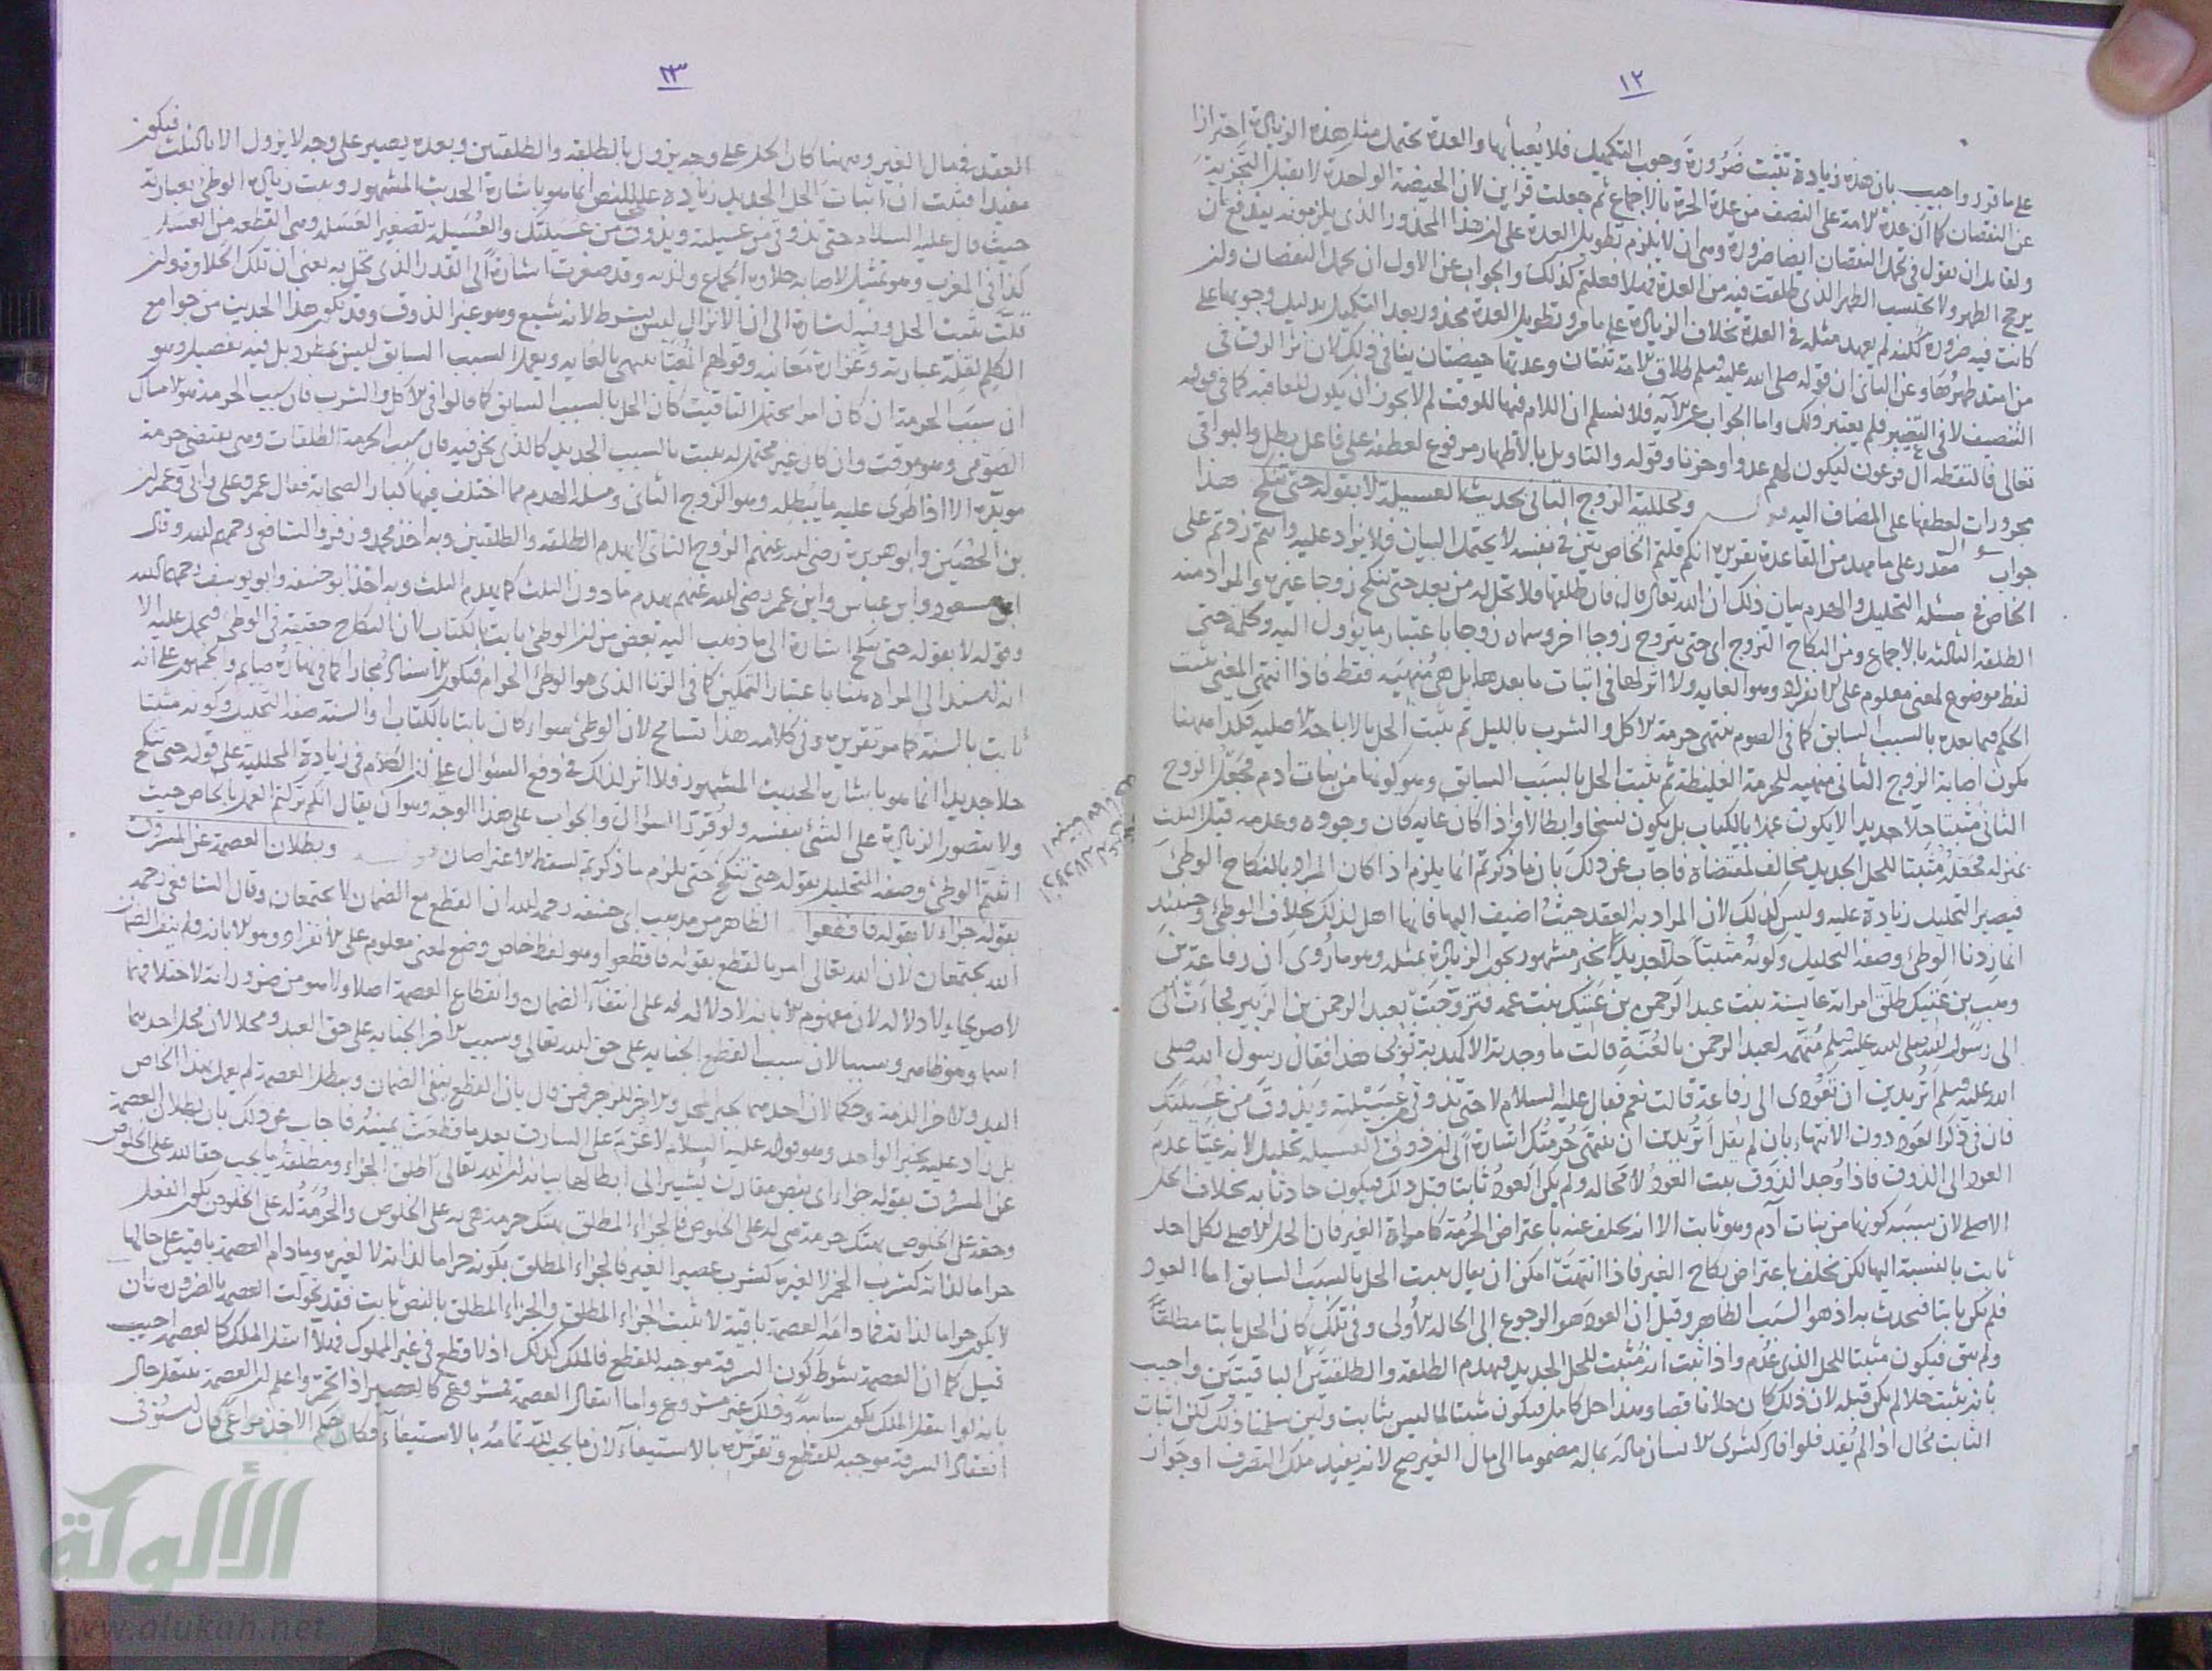 ١٢
على ما قرر واجيب بان هذه زيادة تثبت ضرورة وجوب التكميل فلا يعبأ بها والعدة تحتمل مثل هذه الزيادة احترازا
عن النقصان كما ان عدة الامة على النصف من عدة الحرة بالاجماع ثم جعلت قراين لان الحيضة الواحدة لا تقبل التجزية
ولقايل ان يقول في تحمل النقصان ايضا ضرورة وهى ان لا يلزم تطويل العدة على ان هذا المحذور الذى يلزمونه يندفع بان
كانت فيه ضرورة لكنه لم يعهد مثله في العدة بخلاف الزيادة على ما مر وتطويل العدة محذور بعد التكميل بدليل وجوبها على
من امتد طهرها وعن الثاني ان قوله صلى الله عليه وسلم طلاق الامة ثنتان وعدتها حيضتان ينافي ذلك لان اثر الرق في
التنصيف لا في التغيير فلم يعتبر ذلك واما الجواب عن الآية فلا نسلم ان اللام فيها للوقت لم لا يجوز ان يكون للعاقبة كما في قوله
تعالى فالتقطه آل فرعون ليكون لهم عدوا وحزنا وقوله والتاويل بالاطهار مرفوع لعطفه على فاعل بطل والبواقى
مجرورات لعطفها على المضاف اليه قوله ومحللية الزوج الثاني بحديث العسيلة لا بقوله حتى تنكح هذا
جواب سؤال مقدر على ما مهد من القاعدة تقريره انكم قلتم الخاص بين في نفسه لا يحتمل البيان فلا يزاد عليه وانتم زدتم على
الخاص في مسئلة التحليل والهدم بيان ذلك ان الله تعالى قال فان طلقها فلا تحل له من بعد حتى تنكح زوجا غيره والمراد منه
الطلقة الثالثة بالاجماع ومن النكاح التزوج اى حتى يتزوج زوجا اخر وسماه زوجا باعتبار ما يؤول اليه وكلمة حتى
لفظ موضوع لمعنى معلوم على الانفراد وهو الغاية ولا اثر لها في اثبات ما بعدها بل هى منهية فقط فاذا انتهى المغيى يثبت
الحكم فيما بعده بالسبب السابق كما في الصوم تنتهى حرمة الاكل والشرب بالليل ثم يثبت الحل بالاباحة الاصلية فكذا ههنا
يكون اصابة الزوج الثاني منهية للحرمة الغليظة ثم يثبت الحل بالسبب السابق وهو كونها من بنات ادم فجعل الزوج
الثاني مثبتا حلا جديدا لا يكون عملا بالكتاب بل يكون نسخا وابطالا واذا كان غاية كان وجوده وعدمه قبل الثلث
بمنزلة فجعله مثبتا للحل الجديد مخالف لمقتضاه فاجاب عن ذلك بان ما ذكرتم انما يلزم اذا كان المراد بالنكاح الوطئ
فيصير التحليل زيادة عليه وليس كذلك لان المراد به العقد حيث اضيف اليها فانها اهل لذلك بخلاف الوطئ وحينئذ
انما زدنا الوطئ وصفة التحليل وكونه مثبتا حلا جديدا بخبر مشهور يجوز الزيادة بمثله وهو ما روى ان رفاعة بن
وهب بن عتيك طلق امراته عايشة بنت عبد الرحمن بن عتيك بنت عمه فتزوجت بعبد الرحمن بن الزبير فجاءت
الى رسول الله صلى الله عليه وسلم متهمة لعبد الرحمن بالعنة قالت ما وجدته الا كهدبة ثوبى هذا فقال رسول الله صلى
الله عليه وسلم اتريدين ان تعودى الى رفاعة قالت نعم فقال عليه السلام لا حتى تذوقى من عسيلته ويذوق من عسيلتك
فان في ذكر العود دون الانتهاء بان لم يقل اتريدين ان تنتهى حرمتك اشارة الى ان ذوق العسيلة تحليل لانه غيا عدم
العود الى الذوق فاذا وجد الذوق يثبت العود لا محالة ولم يكن العود ثابتا قبل ذلك فيكون حادثا به بخلاف الحل
الاصلى لان سببه كونها من بنات آدم وهو ثابت الا انه تخلف عنه باعتراض الحرمة كما مراة الغير فان الحل الاصلى لكل احد
ثابت بالنسبة اليها لكن تخلف باعتراض نكاح الغير فاذا انتهت امكن ان يقال يثبت الحل بالسبب السابق اما العود
فلم يكن ثابتا فيحدث به اذ هو السبب الظاهر وقيل ان العود هو الرجوع الى الحالة الاولى وفى تلك كان الحل ثابتا مطلقا
ولم يبق فيكون مثبتا للحل الذى عدم واذا ثبت انه مثبت للحل الجديد فيهدم الطلقة والطلقتين الباقيتين واجيب
بانه يثبت حلا لم يكن قبله لان ذلك كان حلا ناقصا وهذا حل كامل فيكون مثبتا لما ليس بثابت ولئن سلمنا ذلك لكن اثبات
الثابت محال اذا لم يفد فلو افاد كشرى الانسان ماله بماله مضموما الى مال الغير صح لانه يفيد ملك التصرف او جواز
١٣
العقد في مال الغير وههنا كان الحل على وجه يزول بالطلقة والطلقتين وبعده يصير على وجه لا يزول الا بالثلث فيكون
مفيدا فثبت ان اثبات الحل الجديد زيادة على النص انما هو باشارة الحديث المشهور ويثبت زيادة الوطئ بعبارته
حيث قال عليه السلام حتى تذوقى من عسيلته ويذوق من عسيلتك والعسيلة تصغير العسل وهى القطعة من العسل
كذا في المغرب وهو تمثيل لاصابة حلاوة الجماع ولذته وقد صغرت اشارة الى القدر الذى تحل به يعنى ان تلك الحلاوة وان
قلت يثبت الحل وفيه اشارة الى ان الانزال ليس بشرط لانه شبع وهو غير الذوق وقد يكون هذا الحديث من جوامع
الكلم لقلة عبارته وغزارة معانيه وقولهم المغيى ينتهى بالغاية ويعمل السبب السابق ليس بمطرد بل فيه تفصيل وهو
ان سبب الحرمة ان كان امرا يحتمل التاقيت كان الحل بالسبب السابق كما قالوا في الاكل والشرب فان سبب الحرمة هو الامساك
الصومى وهو موقت وان كان غير محتمل له يثبت بالسبب الجديد كالذى نحن فيه فان سبب الحرمة الطلقات وهى تقتضى حرمة
مؤبدة الا اذا طرى عليه ما يبطله وهو الزوج الثانى ومسئلة الهدم مما اختلف فيها كبار الصحابة فقال عمر وعلى وابى وعمران
بن الحصين وابو هريرة رضى الله عنهم الزوج الثانى لا يهدم الطلقة والطلقتين وبه اخذ محمد وزفر والشافعى رحمهم الله وقال
ابن مسعود وابن عباس وابن عمر رضى الله عنهم يهدم ما دون الثلث كما يهدم الثلث وبه اخذ ابو حنيفة وابو يوسف رحمهما الله
وقوله لا بقوله حتى تنكح اشارة الى ما ذهب اليه بعض من ان الوطئ ثابت بالكتاب لان النكاح حقيقة في الوطئ فيحمل عليه الا
انه اسند الى المراة هنا باعتبار التمكين كما في الزنا الذى هو الوطئ الحرام فيكون الاسناد مجازا كما في نهاره صايم والجمهور على انه
ثابت بالسنة كما مر تقريره وفى كلامه هذا تسامح لان الوطئ سواء كان ثابتا بالكتاب او السنة صفة التحليل وكونه مثبتا
حلا جديدا انما هو باشارة الحديث المشهور فلا اثر لذلك في دفع السؤال على ان الكلام في زيادة المحللية على قوله حتى تنكح
ولا يتصور الزيادة على الشئ بنفسه ولو قرر السؤال والجواب على هذا الوجه وهو ان يقال انكم تركتم العمل بالخاص حيث
اثبتم الوطئ وصفة التحليل بقوله حتى تنكح حتى يلزم ما ذكرتم لسقط الاعتراضان قوله وبطلان العصمة عن المسروق
بقوله جزاء لا بقوله فاقطعوا الظاهر من مذهب ابى حنيفة رحمه الله ان القطع مع الضمان لا يجتمعان وقال الشافعى رحمه
الله يجتمعان لان الله تعالى امر بالقطع بقوله فاقطعوا وهو لفظ خاص وضع لمعنى معلوم على الانفراد وهو الابانة ولم ينف الضمان
لا صريحا ولا دلالة لان مفهوم الابانة لا دلالة له على انتفاء الضمان وانقطاع العصمة اصلا ولا هو من ضروراته لاختلافهما
اسما وهو ظاهر وسببا لان سبب القطع الجناية على حق الله تعالى وسبب الاخر الجناية على حق العبد ومحلا لان محل احدهما
اليد والاخر الذمة وحكما لان احدهما يجبر المحل والاخر للزجر فمن قال بان القطع ينفى الضمان ويبطل العصمة لم يعمل بهذا الخاص
بل زاد عليه بخبر الواحد وهو قوله عليه السلام لا غرم على السارق بعد ما قطعت يمينه فاجاب عن ذلك بان بطلان العصمة
عن المسروق بقوله جزاء اى بنص مقارن يشير الى ابطالها بيانه ان الله تعالى اطلق الجزاء ومطلقه ما يجب حقا لله على الخلوص
وحقه على الخلوص بهتك حرمة هى له على الخلوص فالجزاء المطلق بهتك حرمة هى له على الخلوص والحرمة له على الخلوص بكون الفعل
حراما لذاته كشرب الخمر لا لغيره كشرب عصير الغير فالجزاء المطلق بكونه حراما لذاته لا لغيره وما دام العصمة باقية على حالها
لا يكون حراما لذاته فما دامت العصمة باقية لا يثبت الجزاء المطلق والجزاء المطلق بالنص ثابت فقد تحولت العصمة بالضرورة فان
قيل كما ان العصمة شرط كون السرقة موجبة للقطع فالملك كذلك اذ لا قطع في غير المملوك فهلا انتقل الملك كالعصمة اجيب
بانه لو انتقل الملك يكون سائبة وذلك غير مشروع واما انتقال العصمة فمشروع كالعصير اذا تخمر واعلم ان العصمة تنتقل حال
انعقاد السرقة موجبة للقطع وتقرره بالاستيفاء لان ما يجب لله تمامه بالاستيفاء فكان حكم الاخذ مراعى فان استوفى
الألوكة
www.alukah.net